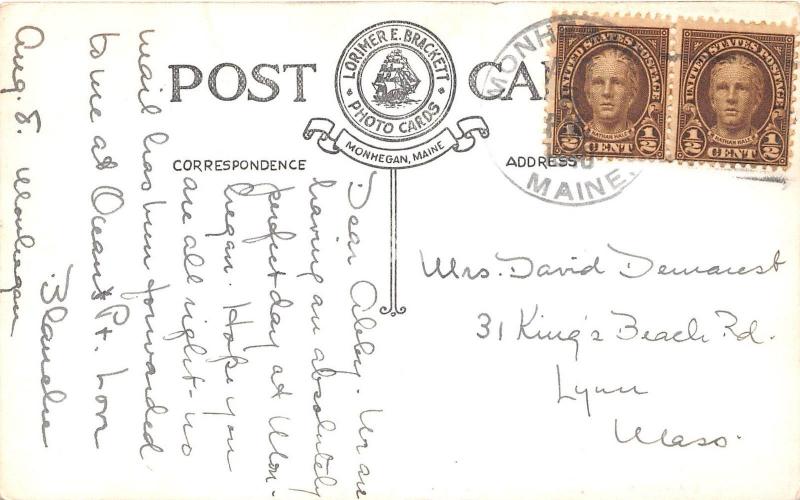 POST CA
LORIMER E. BRACKETT
PHOTO CARDS
MONHEGAN, MAINE
CORRESPONDENCE
ADDRESS
MONHE
MAINE.
UNITED STATES POSTAGE
NATHAN HALE
1/2 CENT 1/2
UNITED STATES POSTAGE
NATHAN HALE
1/2 CENT 1/2
Mrs. David Demarest
31 King's Beach Rd.
Lynn
Mass.
Aug. 8. Monhegan
Dear Abby. We are
having an absolutely
perfect day at Mon-
hegan. Hope you
are all right - no
mail has been forwarded
to me at Ocean Pt. Love
Blanche